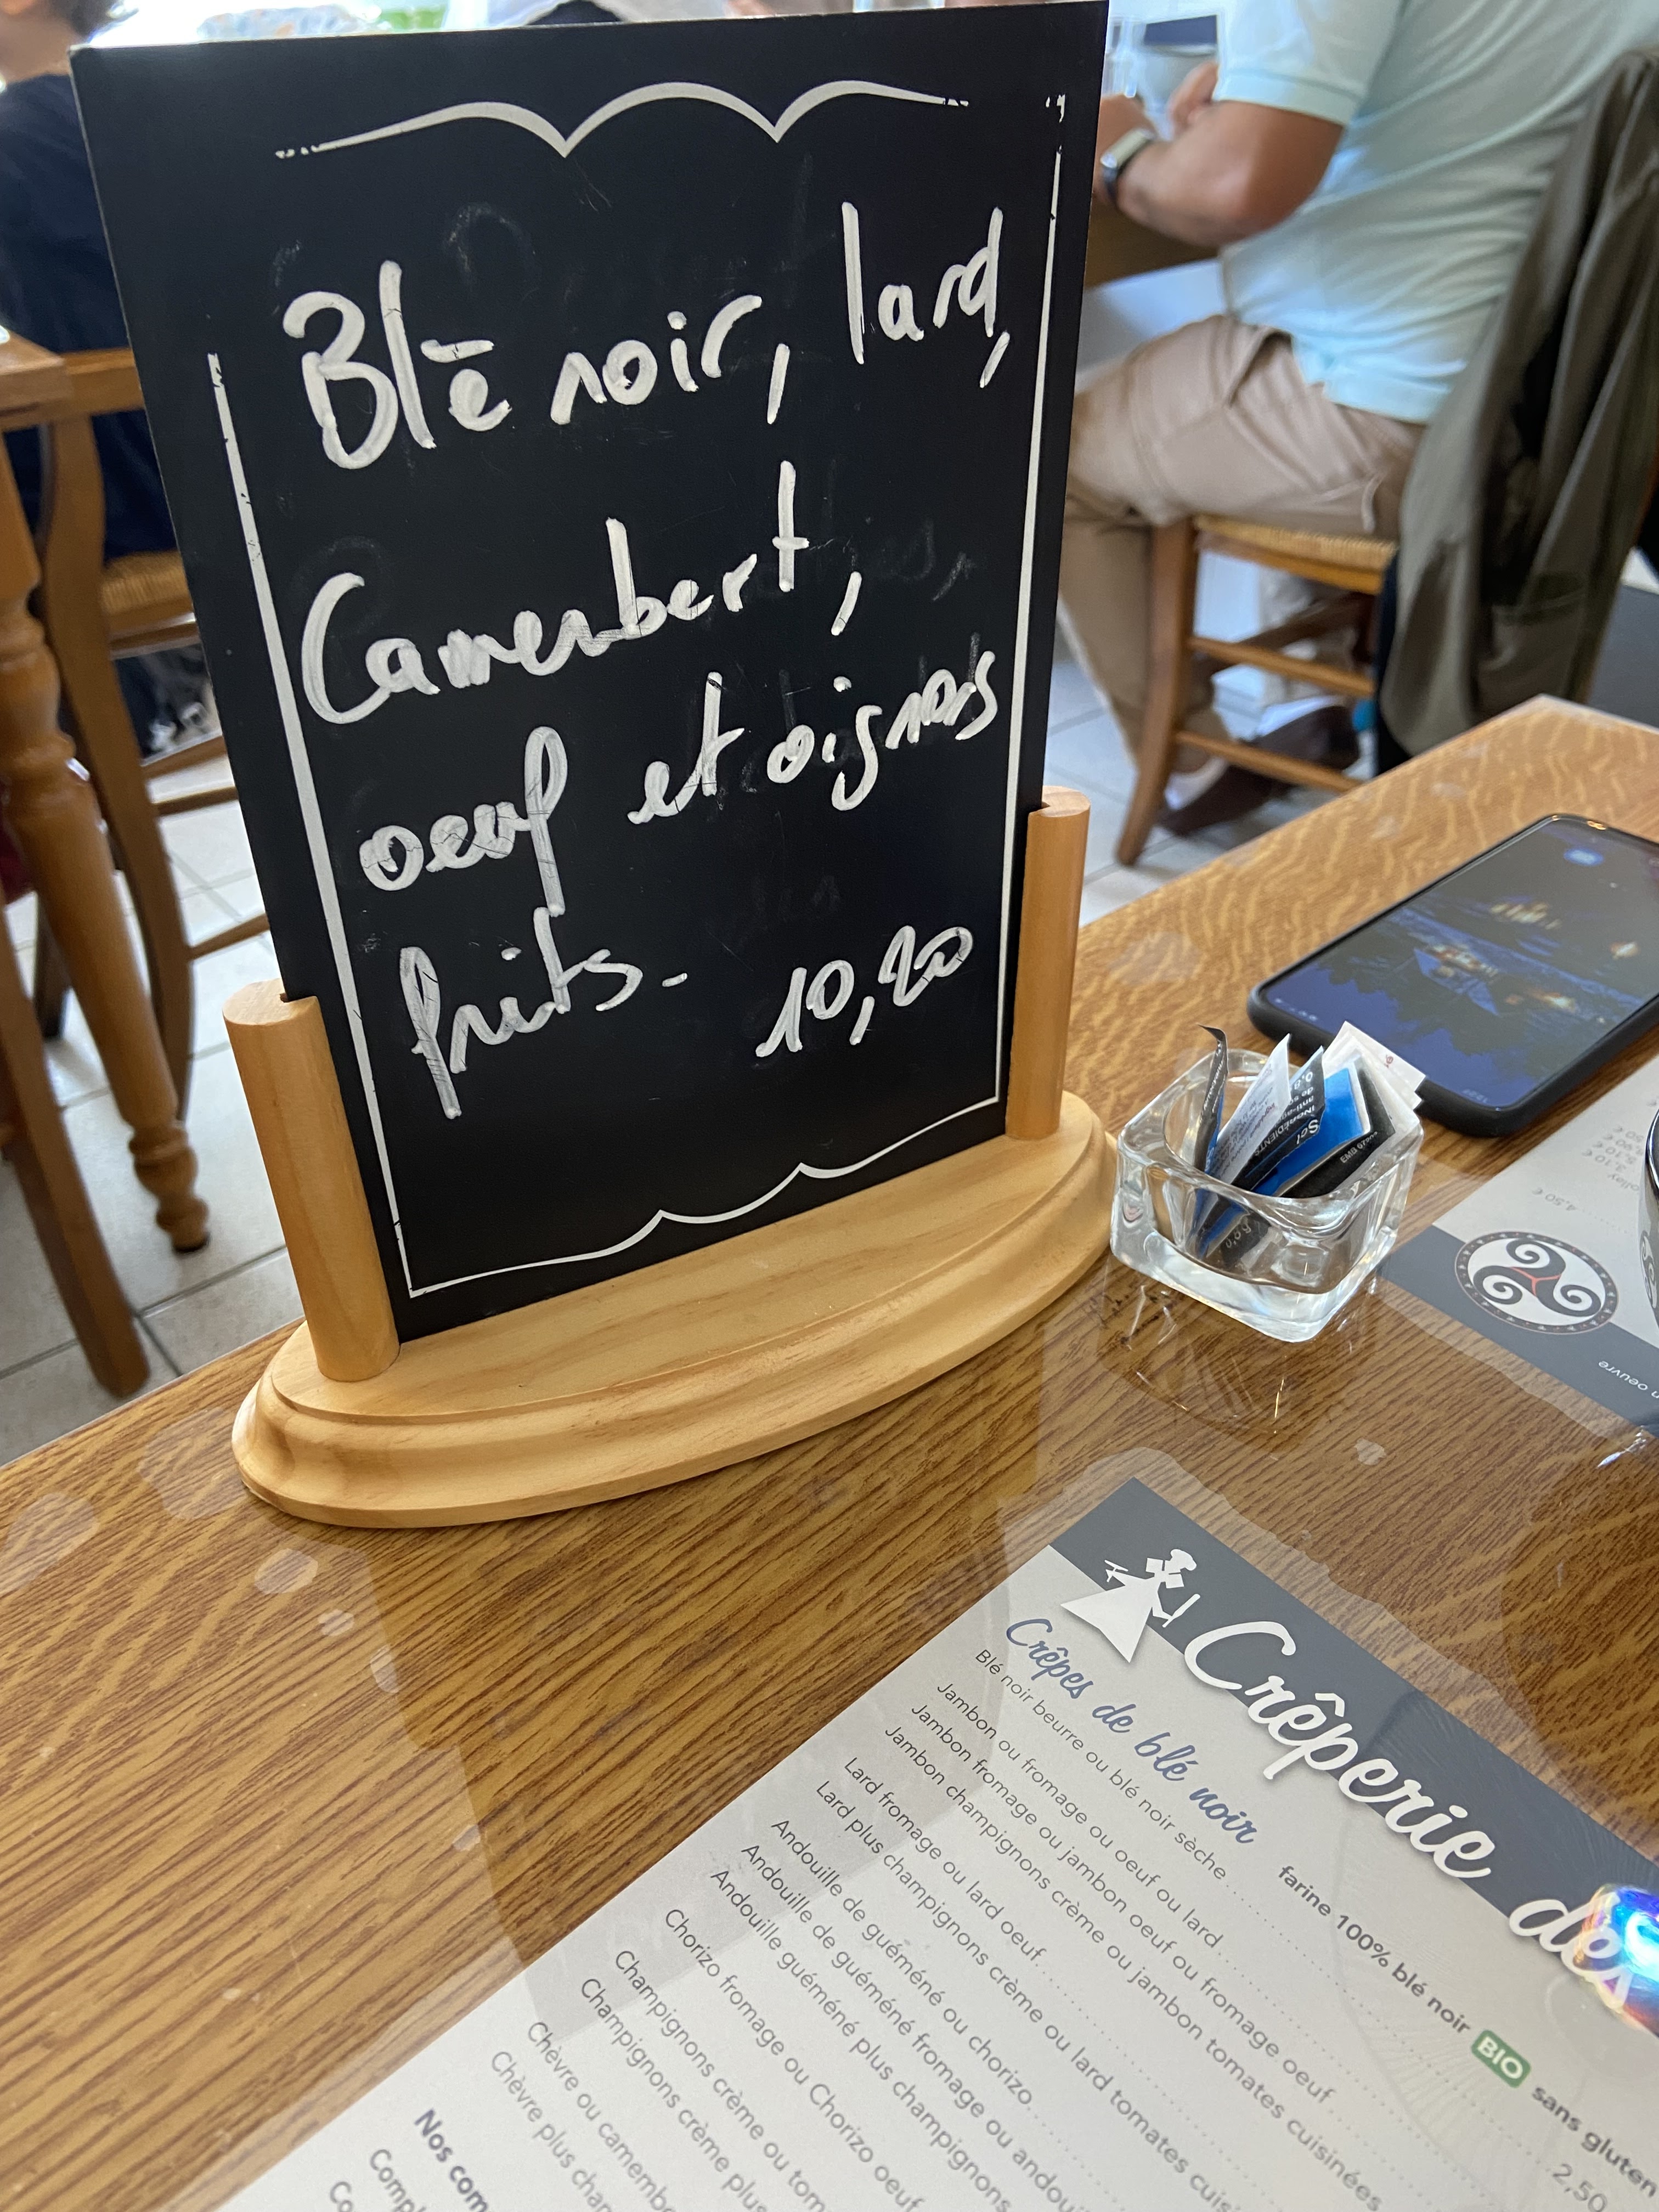 Blé noir, lard,
Camembert,
oeuf et oignons
frits. 10,20
Sel
INGRÉDIENTS
4,50 €
3,10 €
Crêperie des
Crêpes de blé noir
farine 100% blé noir BIO sans gluten
Blé noir beurre ou blé noir sèche
2,50
Jambon ou fromage ou oeuf ou lard
Jambon fromage ou jambon oeuf ou fromage oeuf
Jambon champignons crème ou jambon tomates cuisinées
Lard fromage ou lard oeuf
Lard plus champignons crème ou lard tomates cuisi
Andouille de guéméné ou chorizo
Andouille de guéméné fromage ou andoui
Andouille guéméné plus champignons
Chorizo fromage ou Chorizo oeuf
Champignons crème ou tom
Champignons crème plus
Chèvre ou camembe
Chèvre plus cham
Nos com
Compl
Co